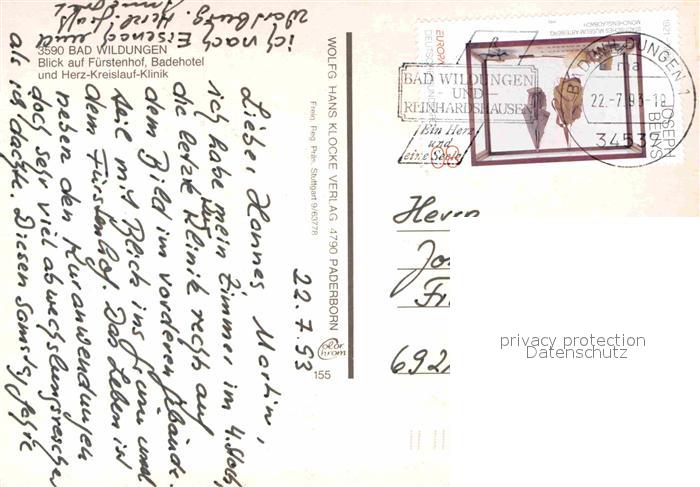 3590 BAD WILDUNGEN
Blick auf Fürstenhof, Badehotel
und Herz-Kreislauf-Klinik
22.7.93
Lieber Hannes Martin,
ich habe mein Zimmer im 4. Stock,
die letzte Klinik rechts auf
dem Bild im vorderen Gebäude.
mit Blick ins Grüne und
dem Fürstenhof. Das Leben ist
neben den Kuranwendungen
doch sehr viel abwechslungsreicher
als ich dachte. Diesen Samstag fahre
ich nach Eisenach und
Wartburg. Herzl. Grüße
WOLFG. HANS KLOCKE VERLAG 4790 PADERBORN
Freig. Reg. Präs. Stuttgart 9/63778
color
chrom
155
EUROPA
DEUTSCHE BUNDESPOST
STÄDTISCHES MUSEUM ABTEIBERG
MÖNCHENGLADBACH
JOSEPH
BEUYS
BAD WILDUNGEN
UND
REINHARDSHAUSEN
Ein Herz
und
eine Seele
BAD WILDUNGEN 1
22.-7.93-18
34537
Herrn
692
privacy protection
Datenschutz